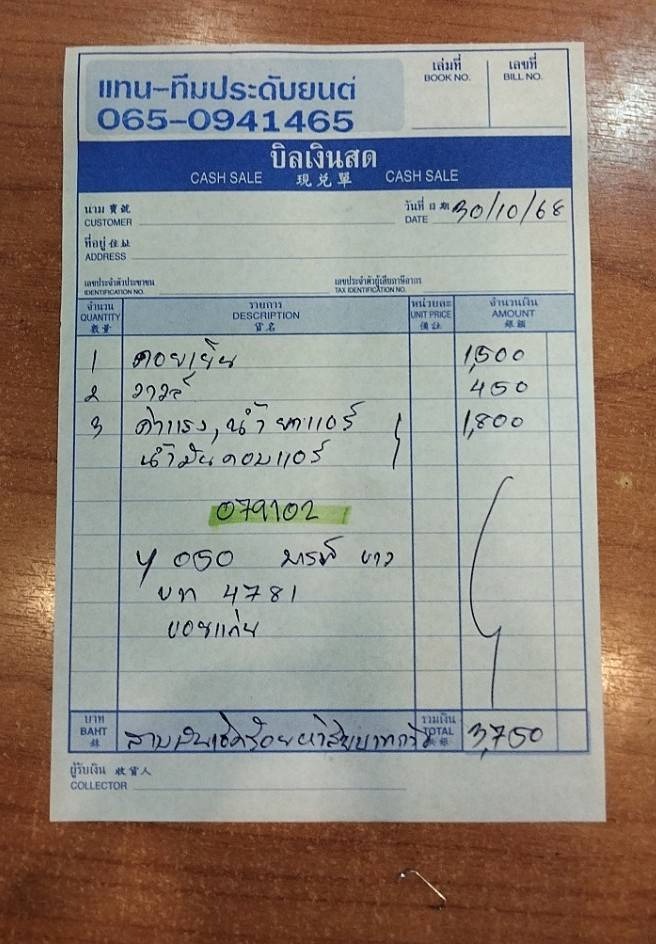 แทน-ทีมประดับยนต์
065-0941465
เล่มที่
BOOK NO.
เลขที่
BILL NO.
บิลเงินสด
CASH SALE 現兑單 CASH SALE
นาม 寶號
CUSTOMER
วันที่ 日期
DATE 30/10/68
ที่อยู่ 住址
ADDRESS
เลขประจำตัวประชาชน
IDENTIFICATION NO.
เลขประจำตัวผู้เสียภาษีอากร
TAX IDENTIFICATION NO.
จำนวน รายการ หน่วยละ จำนวนเงิน
QUANTITY DESCRIPTION UNIT PRICE AMOUNT
數量 貨名 備註 銀額
1 คอยเย็น 1,500
2 วาวล์ 450
3 ค่าแรง, น้ำยาแอร์ 1,800
น้ำมันคอมแอร์
079102
บท 4781
ขอนแก่น
บาท รวมเงิน
BAHT สามพันเจ็ดร้อยห้าสิบบาทถ้วน TOTAL 3,750
ผู้รับเงิน 收貨人
COLLECTOR